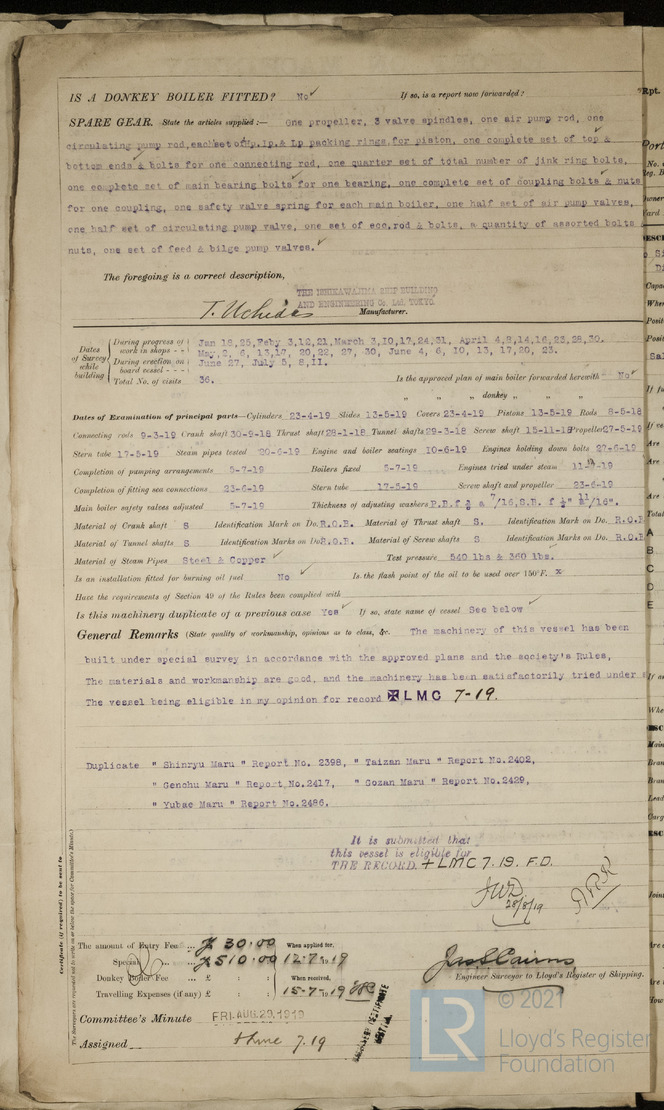 IS A DONKEY BOILER FITTED? No ✓ If so, is a report now forwarded?
SPARE GEAR. State the articles supplied :— One propeller, 3 valve spindles, one air pump rod, one
circulating pump rod, each set of Hp. Ip. & Lp packing rings for piston, one complete set of top &
bottom ends & bolts for one connecting rod, one quarter set of total number of jink ring bolts,
one complete set of main bearing bolts for one bearing, one complete set of coupling bolts & nuts
for one coupling, one safety valve spring for each main boiler, one half set of air pump valves,
one half set of circulating pump valve, one set of ecc.rod & bolts, a quantity of assorted bolts &
nuts, one set of feed & bilge pump valves. ✓
The foregoing is a correct description,
THE ISHIKAWAJIMA SHIP BUILDING
AND ENGINEERING Co. Ltd, TOKYO
T. Uchida Manufacturer.
Dates of Survey while building
During progress of work in shops - - Jan 18,25, Feby 3,12,21, March 3,10,17,24,31, April 4,8,14,16,23,28,30.
May, 2, 6, 13, 17, 20, 22, 27, 30, June 4, 6, 10, 13, 17, 20, 23.
During erection on board vessel - - - June 27, July 5, 8, 11.
Total No. of visits 36. Is the approved plan of main boiler forwarded herewith No ✓
" " " donkey " " "
Dates of Examination of principal parts—Cylinders 23-4-19 Slides 13-5-19 Covers 23-4-19 Pistons 13-5-19 Rods 8-5-18
Connecting rods 9-3-19 Crank shaft 30-9-18 Thrust shaft 28-1-18 Tunnel shafts 29-3-18 Screw shaft 15-11-18 Propeller 27-5-19
Stern tube 17-5-19 Steam pipes tested 20-6-19 Engine and boiler seatings 10-6-19 Engines holding down bolts 27-6-19
Completion of pumping arrangements 5-7-19 Boilers fixed 5-7-19 Engines tried under steam 11-7-19
Completion of fitting sea connections 23-6-19 Stern tube 17-5-19 Screw shaft and propeller 23-6-19
Main boiler safety valves adjusted 5-7-19 Thickness of adjusting washers
Material of Crank shaft S Identification Mark on Do. R.O.B. Material of Thrust shaft S. Identification Mark on Do. R.O.B
Material of Tunnel shafts S Identification Marks on Do. R.O.B. Material of Screw shafts S Identification Marks on Do. R.O.B
Material of Steam Pipes Steel & Copper ✓ Test pressure 540 lbs & 360 lbs.
Is an installation fitted for burning oil fuel No ✓ Is the flash point of the oil to be used over 150°F. x
Have the requirements of Section 49 of the Rules been complied with
Is this machinery duplicate of a previous case Yes ✓ If so, state name of vessel See below ✓
General Remarks (State quality of workmanship, opinions as to class, &c. The machinery of this vessel has been
built under special survey in accordance with the approved plans and the society's Rules,
The materials and workmanship are good, and the machinery has been satisfactorily tried under
The vessel being eligible in my opinion for record ✠LMC 7-19.
Duplicate " Shinryu Maru " Report No. 2398, " Taizan Maru " Report No.2402,
" Genchu Maru " Report No.2417, " Gozan Maru " Report No.2429,
" Yubae Maru " Report No.2486.
It is submitted that
this vessel is eligible for
THE RECORD. + LMC 7. 19. F.D.
28/8/19
Certificate (if required) to be sent to
The amount of Entry Fee ... £ 30.00 When applied for,
Special ... £ 510.00 12-7-19
Donkey Boiler Fee ... £ : : When received,
Travelling Expenses (if any) £ : : 15-7-19
Jas S Cairns
Engineer Surveyor to Lloyd's Register of Shipping.
Committee's Minute FRI. AUG. 29. 1919
Assigned + LMC 7.19
© 2021
LR
Lloyd's Register
Foundation